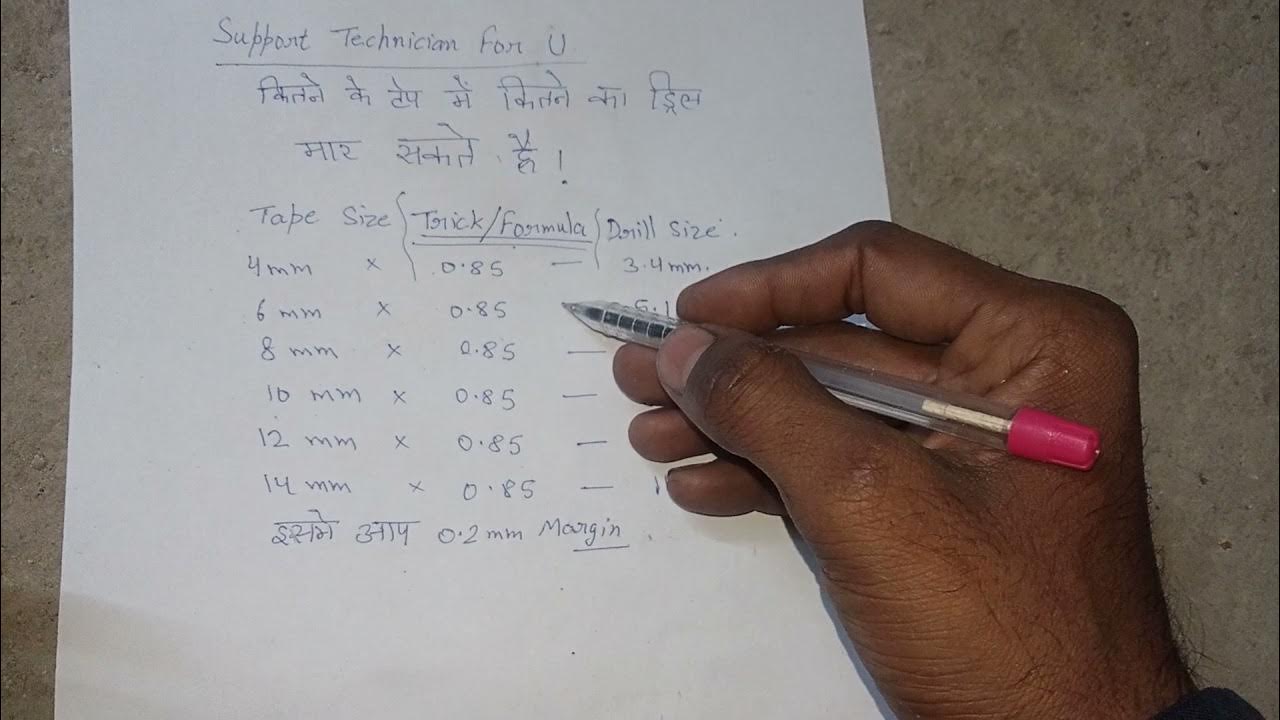 Support Technician For U
कितने के टेप में कितने का ड्रिल
मार सकते है !
Tape Size Trick/Formula Drill Size.
4 mm × 0.85 — 3.4 mm.
6 mm × 0.85 5.1
8 mm × 0.85 —
10 mm × 0.85 —
12 mm × 0.85 —
14 mm × 0.85 — 1
इसमे आप 0.2 mm Margin .